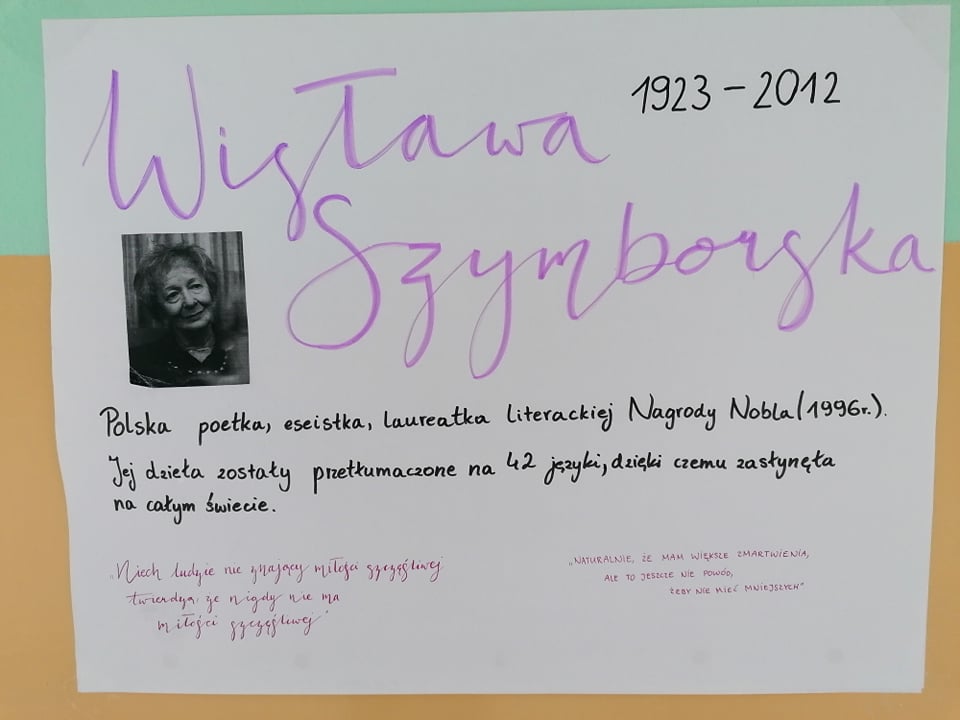 Wisława
1923-2012
Szymborska
Polska poetka, eseistka, laureatka literackiej Nagrody Nobla (1996r.).
Jej dzieła zostały przetłumaczone na 42 języki, dzięki czemu zasłynęła
na całym świecie.
„Niech ludzie nie znający miłości szczęśliwej
twierdzą, że nigdy nie ma
miłości szczęśliwej"
„NATURALNIE, ŻE MAM WIĘKSZE ZMARTWIENIA,
ALE TO JESZCZE NIE POWÓD,
ŻEBY NIE MIEĆ MNIEJSZYCH"